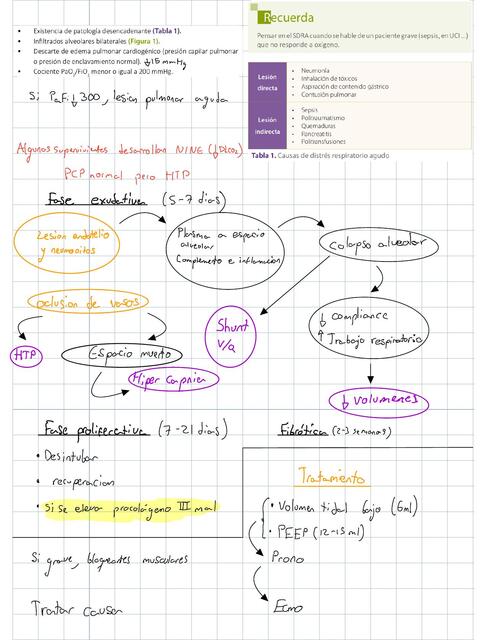 • Existencia de patología desencadenante (Tabla 1).
• Infiltrados alveolares bilaterales (Figura 1).
• Descarte de edema pulmonar cardiogénico (presión capilar pulmonar
o presión de enclavamiento normal). ↓15 mmHg
• Cociente PaO₂/FiO₂ menor o igual a 200 mmHg.
Recuerda
Pensar en el SDRA cuando se hable de un paciente grave (sepsis, en UCI...)
que no responde a oxígeno.
Lesión directa
• Neumonía
• Inhalación de tóxicos
• Aspiración de contenido gástrico
• Contusión pulmonar
Lesión indirecta
• Sepsis
• Politraumatismo
• Quemaduras
• Pancreatitis
• Politransfusiones
Tabla 1. Causas de distrés respiratorio agudo
Si PaFi ↓300, lesion pulmonar aguda
Algunos supervivientes desarrollan NINE (↓DLCO₂)
PCP normal pero HTP
Fase exudativa (5-7 dias)
Lesion endotelio
y neumocitos
Plasma a espacio
alveolar
Complemento e inflamación
Colapso alveolar
oclusion de vasos
HTP
Espacio muerto
Hipercapnia
Shunt
V/Q
↓ compliance
↑ Trabajo respiratorio
↓ volumenes
Fase proliferativa (7-21 dias)
• Desintubar
• recuperacion
• Si se eleva procolágeno III mal
Fibrótica (2-3 semanas)
Si grave, bloqueantes musculares
Tratar causa
Tratamiento
• Volumen tidal bajo (6ml)
• PEEP (12-15 ml)
Prono
Ecmo